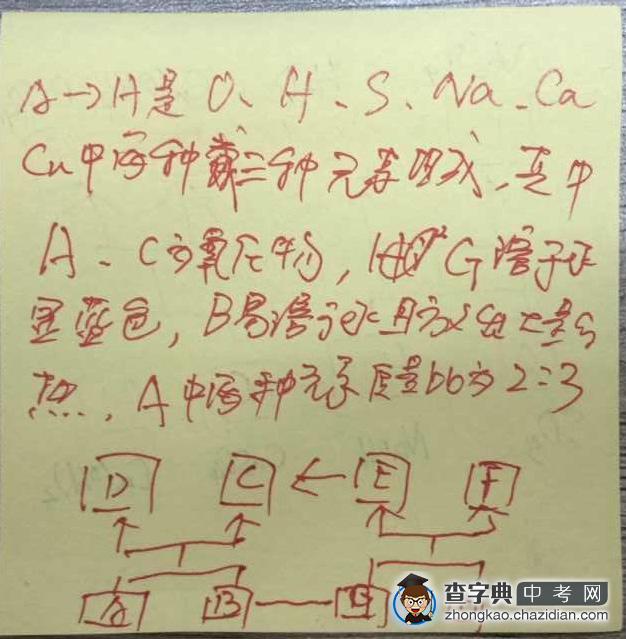 A→H是O、H、S、Na、Ca
Cu中两种或三种元素组成,其中
A、C为氧化物,G溶于水
显蓝色,B易溶于水且放出大量的
热,A中两种元素质量比为2:3
D C ← E F
A B — G
查字典 中考网
zhongkao.chazidian.com